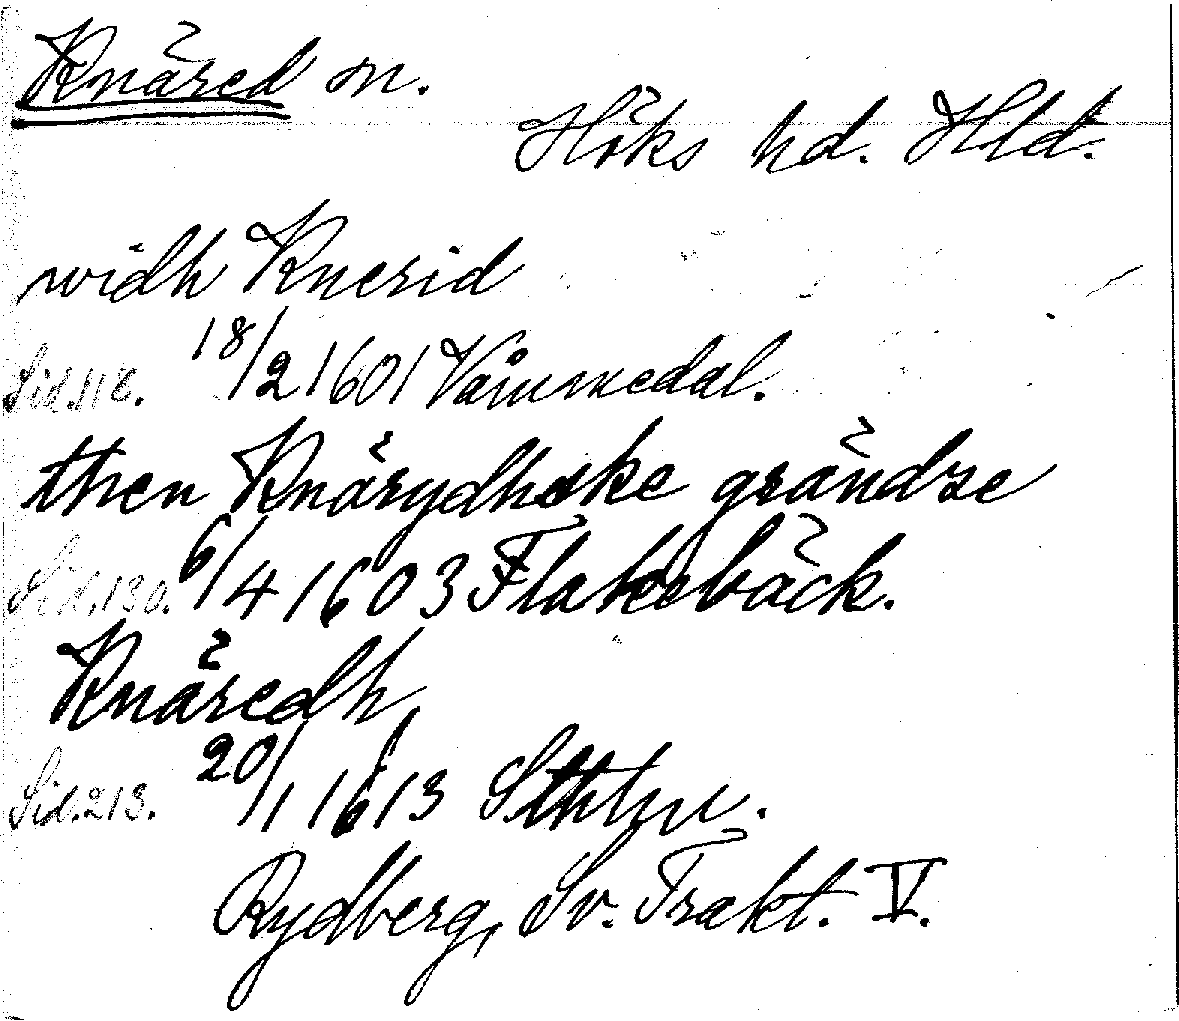 Knäred sn.
Höks hd. Hld.
widh Knerid
Sid. 118. 18/2 1601 Vämmedal.
then Knärydheske grändze
Sid. 130. 6/4 1603 Flakebäck.
Knäredh
Sid. 213. 20/1 1613 Sthlm.
Rydberg, Sv. Trakt. V.